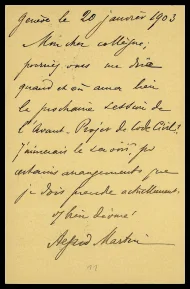 Genève le 20 janvier 1903
Mon cher collègue,
pourriez vous me dire
quand et où aura lieu
la prochaine session de
l'Avant-Projet de Code Civil?
J'aimerais le savoir, pr
certains arrangements que
je dois prendre actuellement.
bien dévoué
Alfred Martin